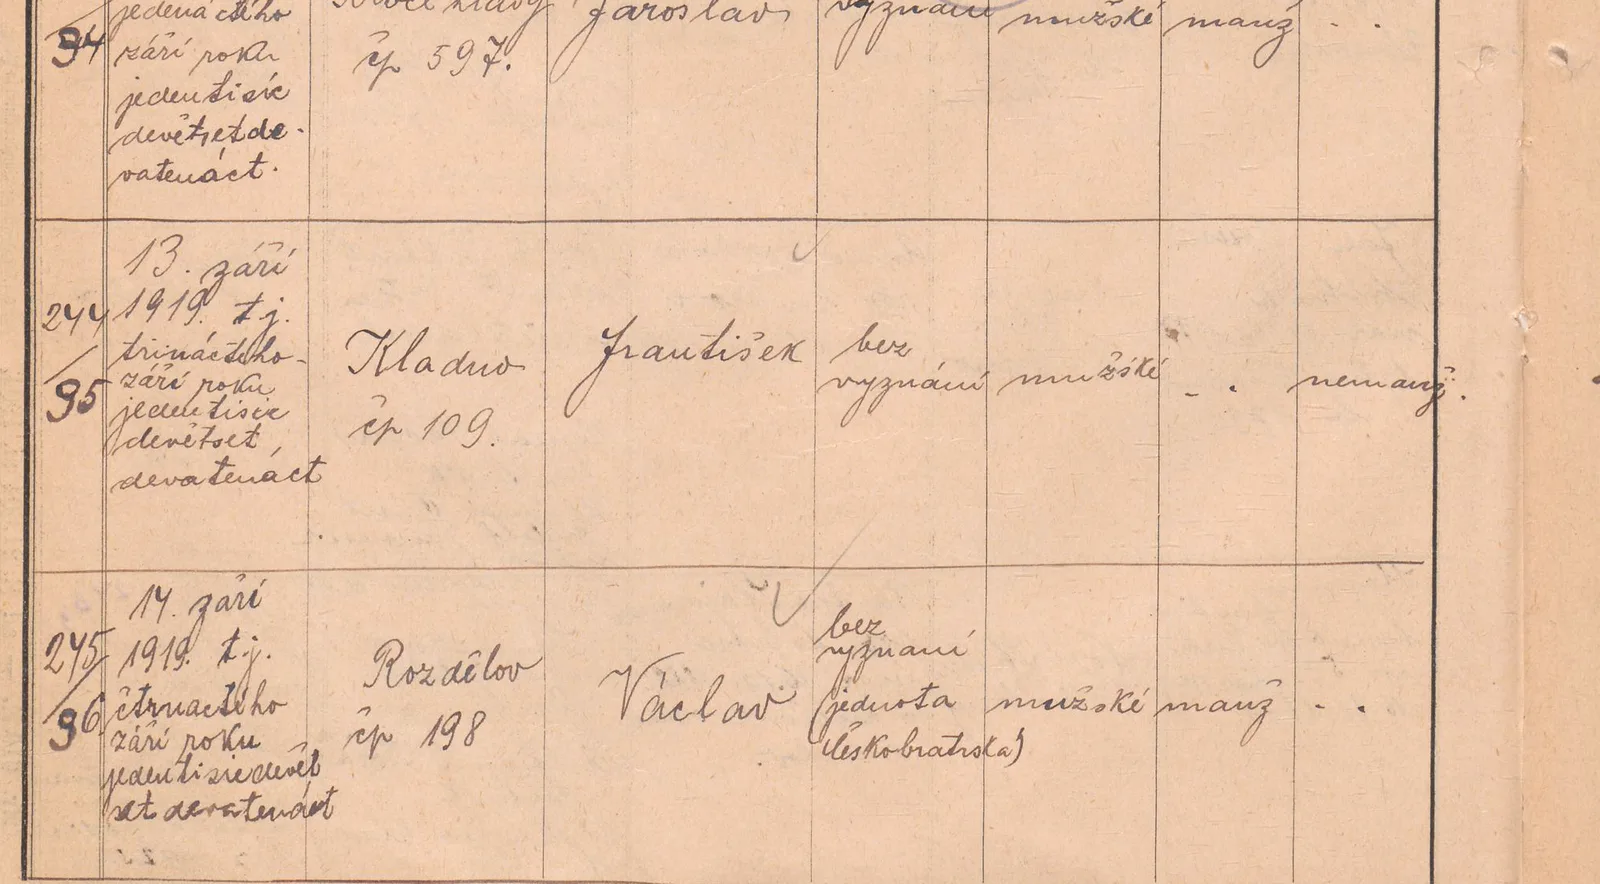 94
jedenáctého
září roku
jedentisíc
devětset de-
vatenáct.
čp 597.
Jaroslav
vyznání
mužské
manž
- .
244/95
13. září
1919. t.j.
trináctého
září roku
jedentisíc
devětset
devatenáct
Kladno
čp 109.
František
bez
vyznání
mužské
- .
nemanž.
245/96
14. září
1919. t.j.
čtrnactého
září roku
jedentisícdevět
set devatenáct
Rozdělov
čp 198
Václav
bez
vyznaní
(jednota
českobratrská)
mužské
manž
- .